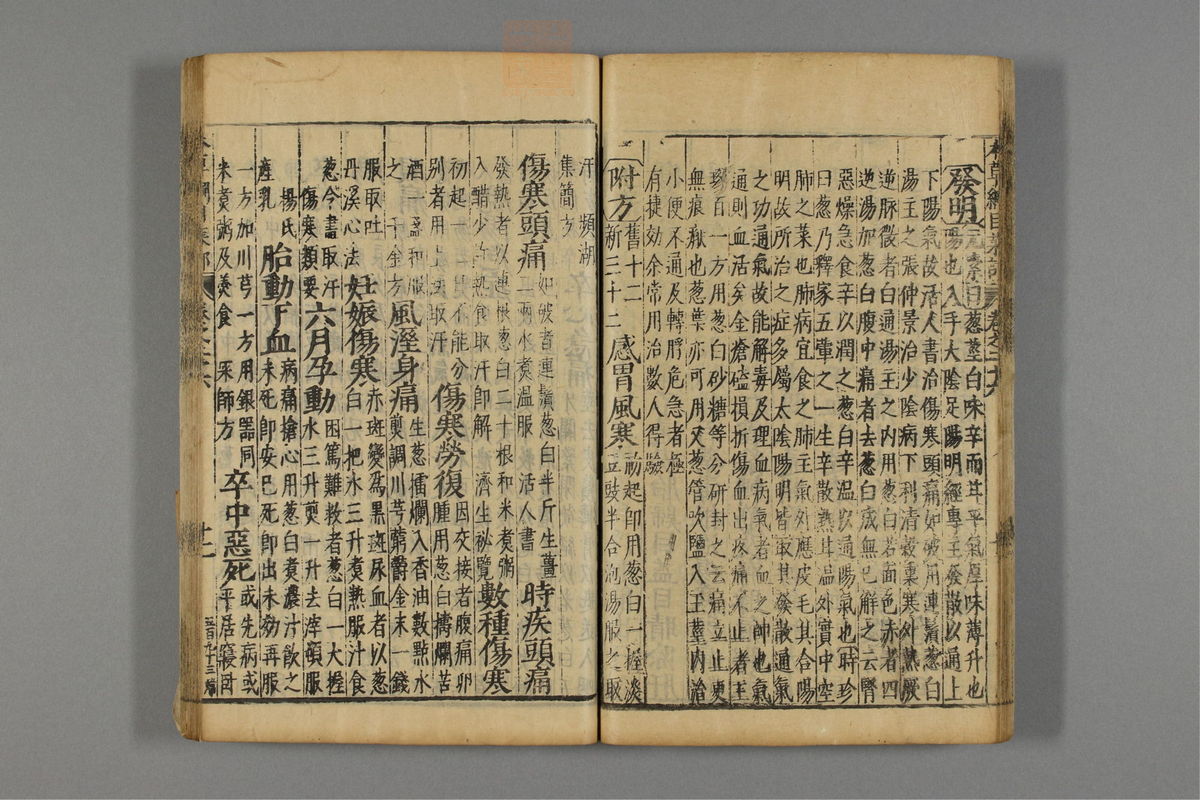 發明元素曰葱莖白味辛而甘平氣厚味薄升也
陽也入手太陰足陽明經專主發散以通上
下陽氣故活人書治傷寒頭痛如破用連鬚葱白
湯主之張仲景治少陰病下利清穀裏寒外熱厥
逆脉微者白通湯主之內用葱白若面色赤者四
逆湯加葱白腹中痛者去葱白成無已解之云腎
惡燥急食辛以潤之葱白辛温以通陽氣也時珍
曰葱乃釋家五葷之一生辛散熟甘温外實中空
肺之菜也肺病宜食之肺主氣外應皮毛其合陽
明故所治之症多屬太陰陽明皆取其發散通氣
之功通氣故能解毒及理血病氣者血之帥也氣
通則血活矣金瘡磕損折傷血出疼痛不止者王
璆百一方用葱白砂糖等分研封之云痛立止更
無痕瘢也葱葉亦可用又葱管吹鹽入玉莖內治
小便不通及轉脬危急者極
有捷効余常用治數人得驗
附方舊十二新三十二 感冒風寒初起即用葱白一握淡豆豉半合泡湯服之取
汗 瀕湖集簡方
傷寒頭痛如破者連鬚葱白半斤生薑二兩水煮温服 活人書 時疾頭痛
發熱者以連根葱白二十根和米煮粥入醋少許熱食取汗即解 濟生祕覽 數種傷寒
初起一二日不能分别者用上法取汗 傷寒勞復因交接者腹痛卵腫用葱白擣爛苦
酒一盞和服之 千金方 風溼身痛生葱擂爛入香油數點水煎調川芎藭鬱金末一錢
服取吐 丹溪心法 妊娠傷寒赤斑變爲黑斑尿血者以葱白一把水三升煮熟服汁食
葱令盡取汗 傷寒類要 六月孕動困篤難救者葱白一大握水三升煎一升去滓頓服
楊氏產乳 胎動下血病痛搶心用葱白煮濃汁飲之未死即安已死即出未効再服
一方加川芎一方用銀器同米煮粥及羹食 梅師方 卒中惡死或先病或平居寢卧